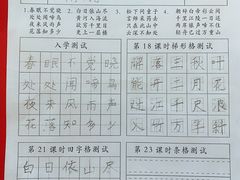 1、春眠不觉晓
处处闻啼鸟
夜来风雨声
花落知多少
2、白日依山尽
黄河入海流
欲穷千里目
更上一层楼
3、松下问童子
言师采药去
只在此山中
云深不知处
4、朝辞白帝彩云间
千里江陵一日还
两岸猿声啼不住
轻舟已过万重山
入学测试
春眠不觉晓
处处闻啼鸟
夜来风雨声
花落知多少
第18课时梯形格测试
解落三秋叶
能开二月花
过江千尺浪
入竹万竿斜
第21课时田字格测试
白日依山尽
第23课时条格测试